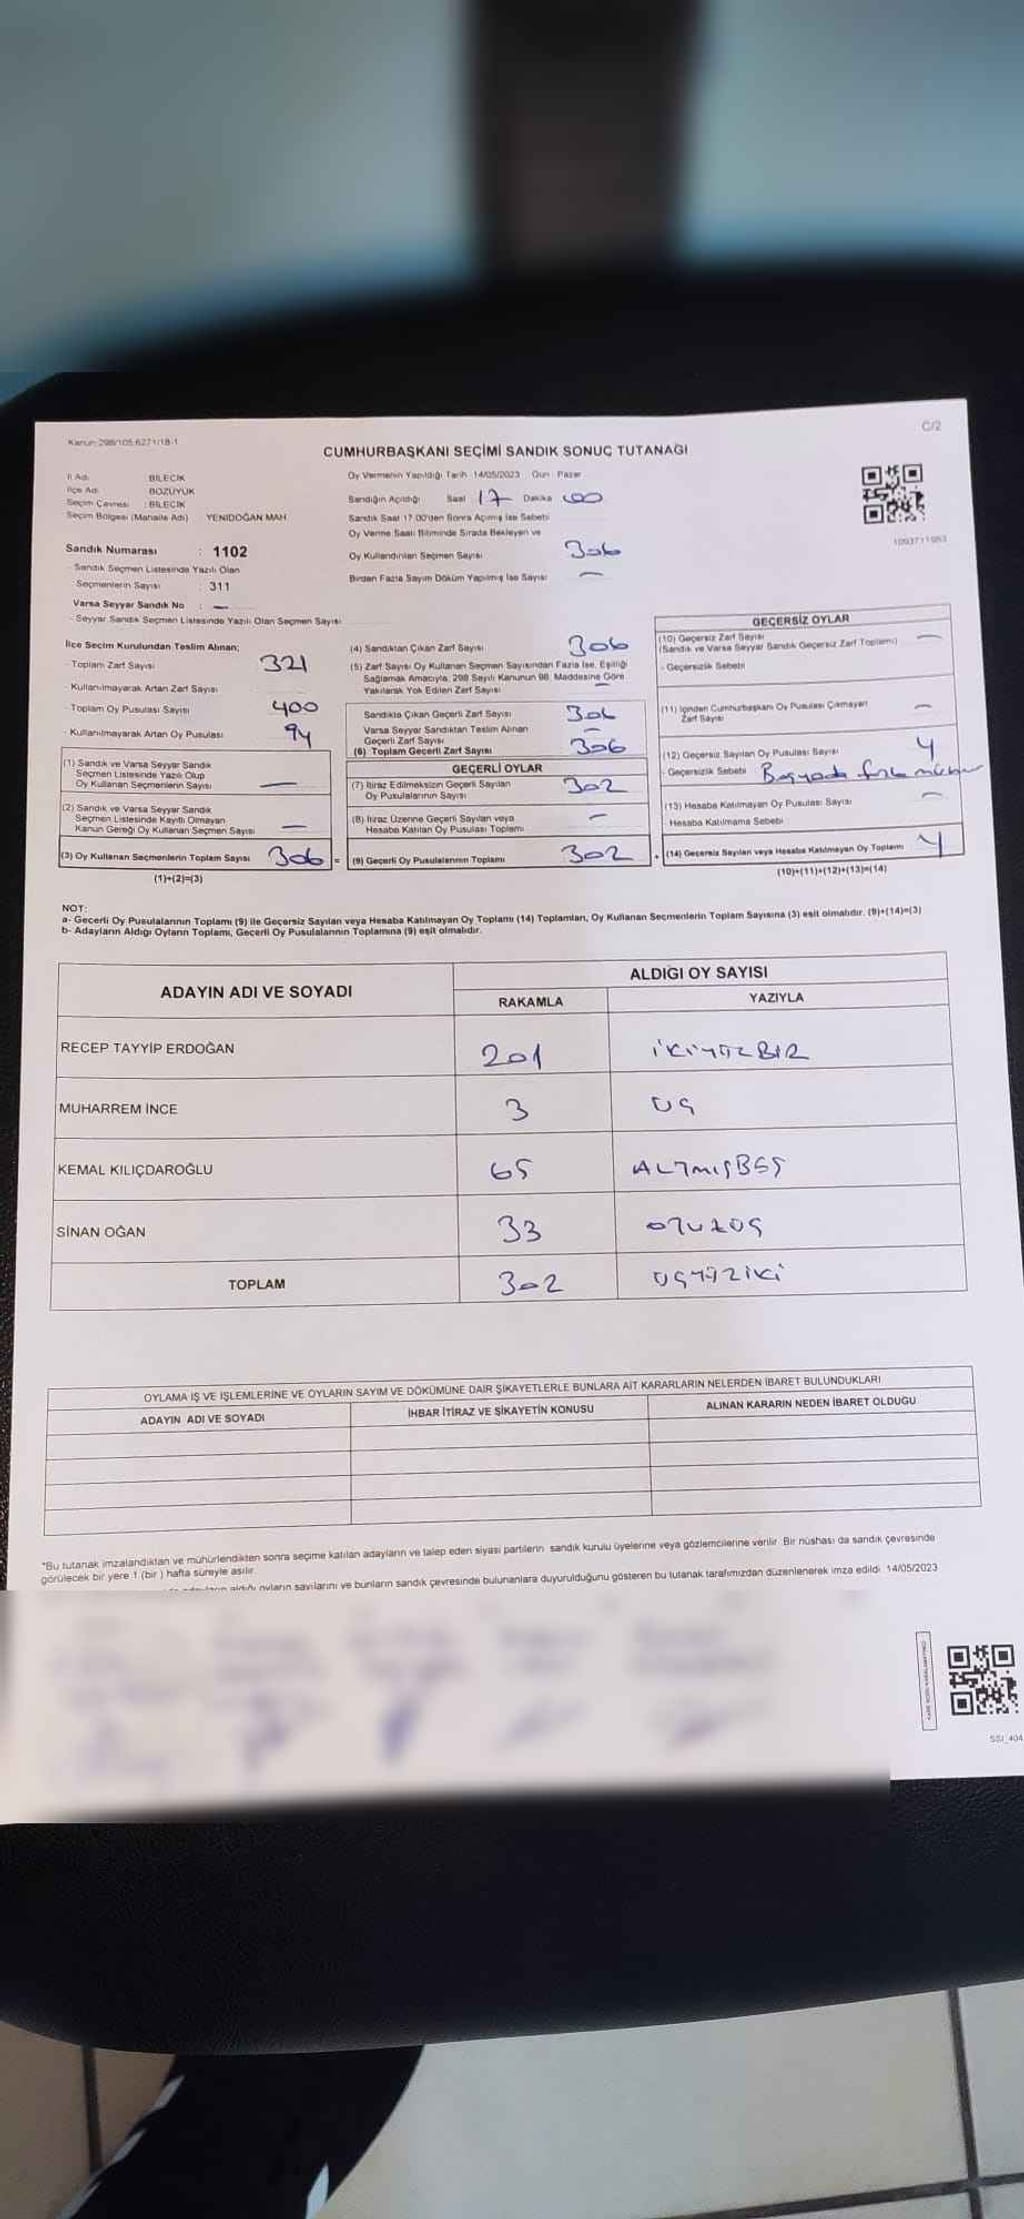 Kanun: 298/105 6271/18-1
C/2
CUMHURBAŞKANI SEÇİMİ SANDIK SONUÇ TUTANAĞI
İl Adı BİLECİK
İlçe Adı BOZÜYÜK
Seçim Çevresi : BİLECİK
Seçim Bölgesi (Mahalle Adı) YENİDOĞAN MAH.
Sandık Numarası : 1102
- Sandık Seçmen Listesinde Yazılı Olan
Seçmenlerin Sayısı : 311
Varsa Seyyar Sandık No : —
- Seyyar Sandık Seçmen Listesinde Yazılı Olan Seçmen Sayısı
Oy Vermenin Yapıldığı Tarih : 14/05/2023 Gün : Pazar
Sandığın Açıldığı Saat 17 Dakika 00
Sandık Saat 17.00'den Sonra Açılmış İse Sebebi
Oy Verme Saati Bitiminde Sırada Bekleyen ve
Oy Kullandırılan Seçmen Sayısı 306
Birden Fazla Sayım Döküm Yapılmış İse Sayısı —
1093711953
İlçe Seçim Kurulundan Teslim Alınan;
- Toplam Zarf Sayısı 321
- Kullanılmayarak Artan Zarf Sayısı
- Toplam Oy Pusulası Sayısı 400
- Kullanılmayarak Artan Oy Pusulası 94
(1) Sandık ve Varsa Seyyar Sandık
Seçmen Listesinde Yazılı Olup
Oy Kullanan Seçmenlerin Sayısı —
(2) Sandık ve Varsa Seyyar Sandık
Seçmen Listesinde Kayıtlı Olmayan
Kanun Gereği Oy Kullanan Seçmen Sayısı —
(3) Oy Kullanan Seçmenlerin Toplam Sayısı 306 =
(1)+(2)=(3)
(4) Sandıktan Çıkan Zarf Sayısı 306
(5) Zarf Sayısı Oy Kullanan Seçmen Sayısından Fazla İse, Eşitliği
Sağlamak Amacıyla, 298 Sayılı Kanunun 98. Maddesine Göre
Yakılarak Yok Edilen Zarf Sayısı —
Sandıkta Çıkan Geçerli Zarf Sayısı 306
Varsa Seyyar Sandıktan Teslim Alınan
Geçerli Zarf Sayısı —
(6) Toplam Geçerli Zarf Sayısı 306
GEÇERLİ OYLAR
(7) İtiraz Edilmeksizin Geçerli Sayılan
Oy Pusulalarının Sayısı 302
(8) İtiraz Üzerine Geçerli Sayılan veya
Hesaba Katılan Oy Pusulası Toplamı —
(9) Geçerli Oy Pusulalarının Toplamı 302 +
GEÇERSİZ OYLAR
(10) Geçersiz Zarf Sayısı
(Sandık ve Varsa Seyyar Sandık Geçersiz Zarf Toplamı) —
- Geçersizlik Sebebi
(11) İçinden Cumhurbaşkanı Oy Pusulası Çıkmayan
Zarf Sayısı —
(12) Geçersiz Sayılan Oy Pusulası Sayısı 4
- Geçersizlik Sebebi
(13) Hesaba Katılmayan Oy Pusulası Sayısı —
- Hesaba Katılmama Sebebi
(14) Geçersiz Sayılan veya Hesaba Katılmayan Oy Toplamı 4
(10)+(11)+(12)+(13)=(14)
NOT:
a- Geçerli Oy Pusulalarının Toplamı (9) ile Geçersiz Sayılan veya Hesaba Katılmayan Oy Toplamı (14) Toplamları, Oy Kullanan Seçmenlerin Toplam Sayısına (3) eşit olmalıdır. (9)+(14)=(3)
b- Adayların Aldığı Oyların Toplamı, Geçerli Oy Pusulalarının Toplamına (9) eşit olmalıdır.
ADAYIN ADI VE SOYADI
ALDIĞI OY SAYISI
RAKAMLA YAZIYLA
RECEP TAYYİP ERDOĞAN 201 İKİYÜZBİR
MUHARREM İNCE 3 ÜÇ
KEMAL KILIÇDAROĞLU 65 ALTMIŞBEŞ
SİNAN OĞAN 33 OTUZÜÇ
TOPLAM 302 ÜÇYÜZİKİ
OYLAMA İŞ VE İŞLEMLERİNE VE OYLARIN SAYIM VE DÖKÜMÜNE DAİR ŞİKAYETLERLE BUNLARA AİT KARARLARIN NELERDEN İBARET BULUNDUKLARI
ADAYIN ADI VE SOYADI İHBAR İTİRAZ VE ŞİKAYETİN KONUSU ALINAN KARARIN NEDEN İBARET OLDUĞU
*Bu tutanak imzalandıktan ve mühürlendikten sonra seçime katılan adayların ve talep eden siyasi partilerin sandık kurulu üyelerine veya gözlemcilerine verilir. Bir nüshası da sandık çevresinde
görülecek bir yere 1 (bir ) hafta süreyle asılır.
aldığı oyların sayılarını ve bunların sandık çevresinde bulunanlara duyurulduğunu gösteren bu tutanak tarafımızdan düzenlenerek imza edildi. 14/05/2023
SSI_404